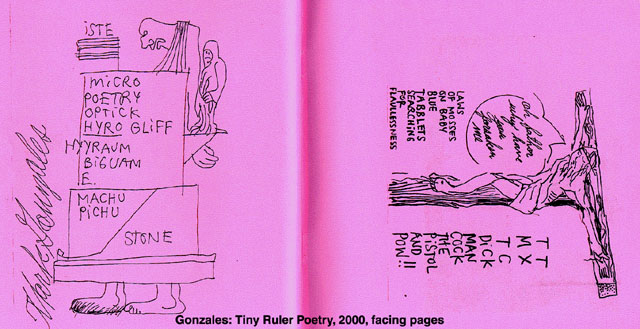 iSTE
MiCRO
POETRY
OPTiCK
HYRO GLiFF
HYYRAUM
BiGUAM
E.
MACHU
PiCHU
STONE
Mark Gonzales
LAWS
OF MOSSES
ON BABY
BLUE
TABBLETS
SEARCHING
FOR
FLAWLESSNESS
oh father
why have
you
forsaken
me
T T
M X
T C
DiCK
MAN
COCK
THE
PiSTOL
AND
POW!!
Gonzales: Tiny Ruler Poetry, 2000, facing pages